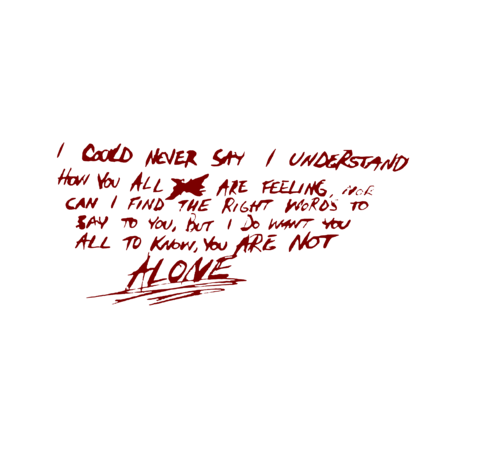 I COULD NEVER SAY I UNDERSTAND
HOW YOU ALL ARE FEELING, NOR
CAN I FIND THE RIGHT WORDS TO
SAY TO YOU, BUT I DO WANT YOU
ALL TO KNOW, YOU ARE NOT
ALONE